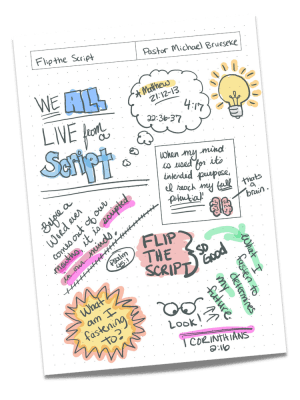 Flip the Script
Pastor Michael Brueseke
WE ALL
LIVE from
a
Script
* Matthew
21:12-13
4:17
22:36-37
When my mind
is used for its
intended purpose,
I reach my full
potential"
that's
a
brain.
Before a
Word ever
comes out of our
mouths, it is scripted
in our minds.
Psalm
FLIP
THE
SCRIPT!
SO
GOOD
What I
fasten to
determines
my
future
What
am I
fastening
to?
LOOK!
1 CORINTHIANS
2:16